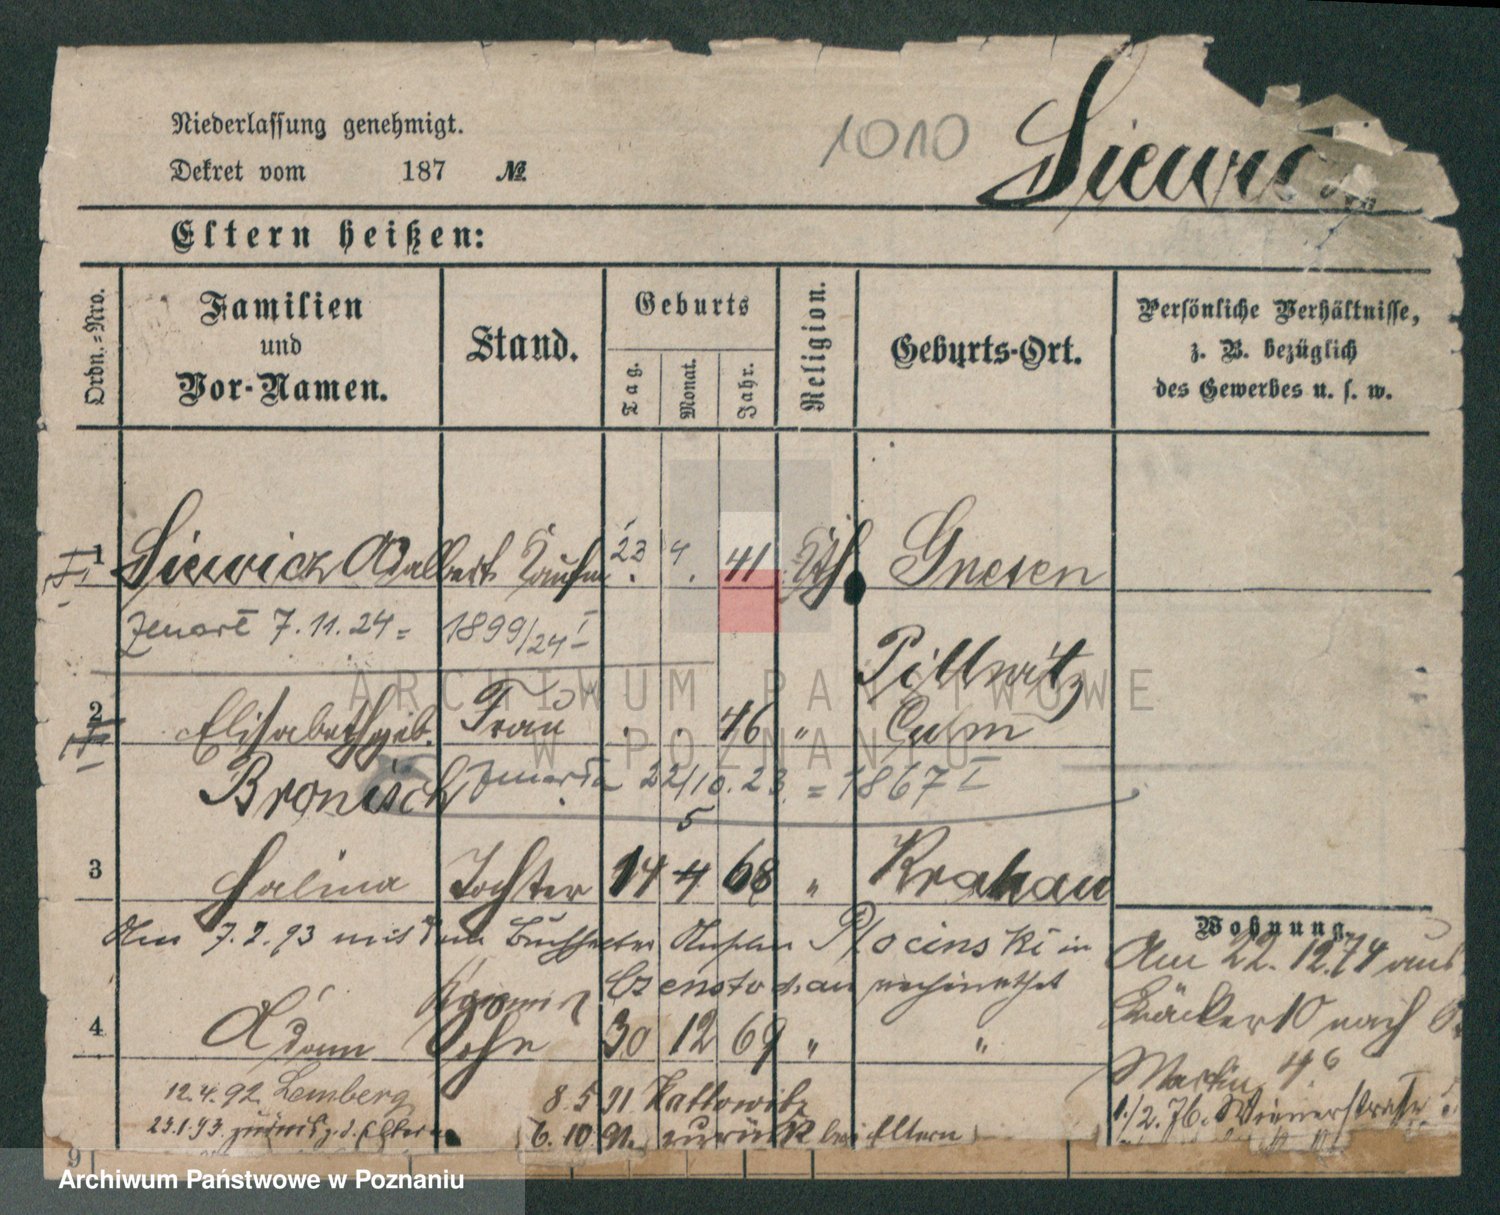 Niederlassung genehmigt.
1010
Dekret vom 187 №
Eltern heißen:
Ordn.=Nro.
Familien
und
Vor-Namen.
Stand.
Geburts
Tag.
Monat.
Jahr.
Religion.
Geburts-Ort.
Persönliche Verhältnisse,
z. B. bezüglich
des Gewerbes u. s. w.
1 Siewicz Adalbert Kaufm 23 41 Kth. Gnesen
7.11.24 = 1899/24 I
Pillwitz
2 Elisabeth geb. Frau . . 46 „ Culm
Bronisch 22/10.23 = 1867 I
5
3 Halina Tochter 14 4 68 „ Krakau
Am 7.2.93 mit dem Plocinski in
Czenstochau
4 Adam Sohn 30 12 69 „ „
12.4.92 Lemberg 8.5.91 Kattowitz
23.1.93 zurück z. d. Eltern 6.10.91. zurück bei Eltern
Wohnung.
Am 22.12.74 aus
Bäcker 10 nach
Martin 46
1./2.76. Wienerstraße
9
ARCHIWUM PAŃSTWOWE
W POZNANIU
Archiwum Państwowe w Poznaniu